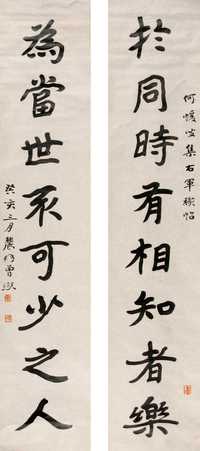 何蝯叟集右軍禊帖
於同時有相知者樂
為當世不可少之人
癸亥三月農髯曾熙